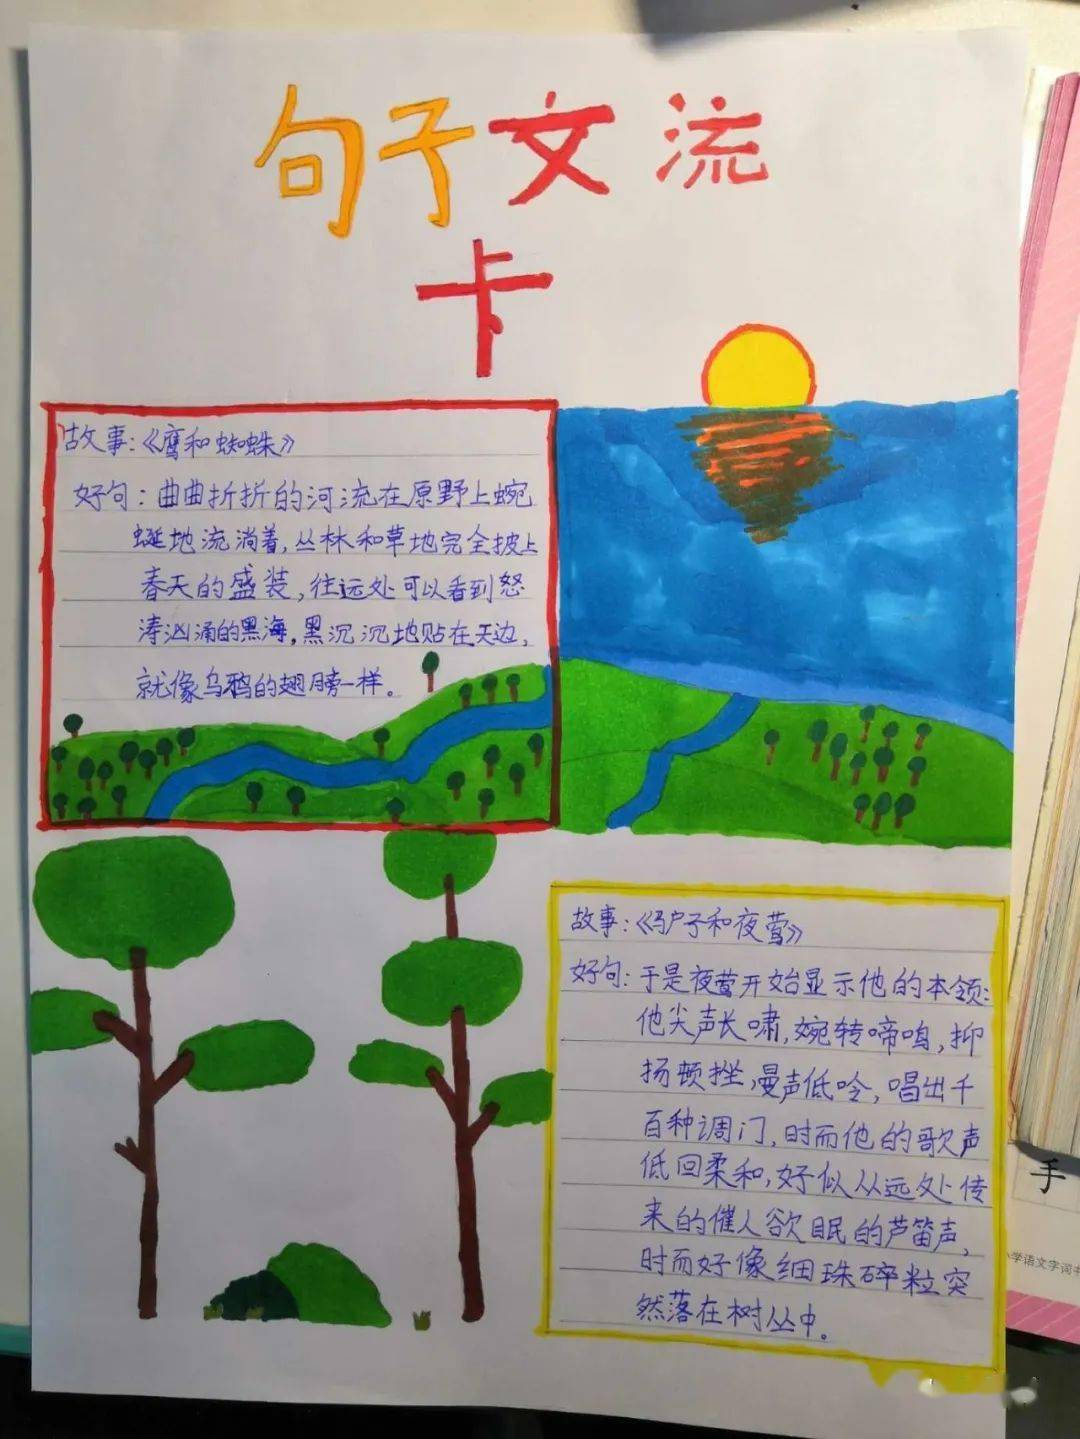 句子文流
卡
故事:《鹰和蜘蛛》
好句:曲曲折折的河流在原野上蜿
蜒地流淌着,丛林和草地完全披上
春天的盛装,往远处可以看到怒
涛汹涌的黑海,黑沉沉地贴在天边,
就像乌鸦的翅膀一样。
故事:《驴子和夜莺》
好句:于是夜莺开始显示他的本领:
他尖声长啸,婉转啼鸣,抑
扬顿挫,曼声低吟,唱出千
百种调门,时而他的歌声
低回柔和,好似从远处传
来的催人欲眠的芦笛声,
时而好像细珠碎粒突
然落在树丛中。
手
小学语文字词